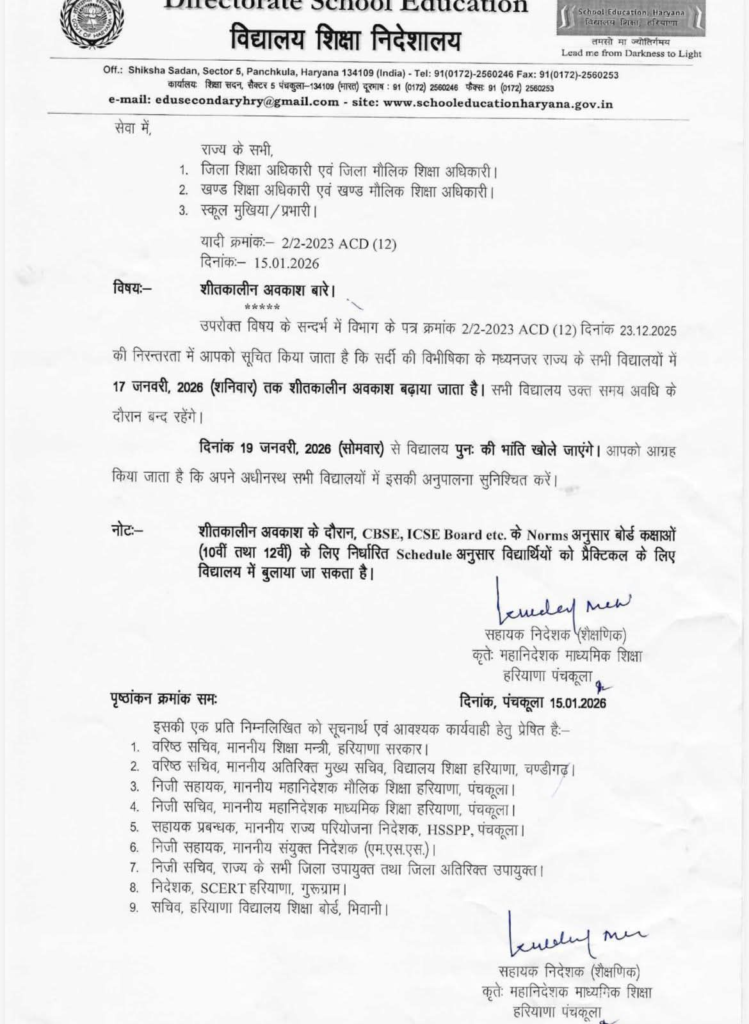 Directorate School Education
विद्यालय शिक्षा निदेशालय
School Education, Haryana
विद्यालय शिक्षा, हरियाणा
तमसो मा ज्योतिर्गमय
Lead me from Darkness to Light
Off.: Shiksha Sadan, Sector 5, Panchkula, Haryana 134109 (India) - Tel: 91(0172)-2560246 Fax: 91(0172)-2560253
कार्यालयः शिक्षा सदन, सैक्टर 5 पंचकुला–134109 (भारत) दूरभाष : 91 (0172) 2560246 फैक्सः 91 (0172) 2560253
e-mail: edusecondaryhry@gmail.com - site: www.schooleducationharyana.gov.in
सेवा में,
राज्य के सभी,
1. जिला शिक्षा अधिकारी एवं जिला मौलिक शिक्षा अधिकारी।
2. खण्ड शिक्षा अधिकारी एवं खण्ड मौलिक शिक्षा अधिकारी।
3. स्कूल मुखिया/प्रभारी।
यादी क्रमांकः– 2/2-2023 ACD (12)
दिनांकः– 15.01.2026
विषयः– शीतकालीन अवकाश बारे।
*****
उपरोक्त विषय के सन्दर्भ में विभाग के पत्र क्रमांक 2/2-2023 ACD (12) दिनांक 23.12.2025
की निरन्तरता में आपको सूचित किया जाता है कि सर्दी की विभीषिका के मध्यनजर राज्य के सभी विद्यालयों में
17 जनवरी, 2026 (शनिवार) तक शीतकालीन अवकाश बढ़ाया जाता है। सभी विद्यालय उक्त समय अवधि के
दौरान बन्द रहेंगे।
दिनांक 19 जनवरी, 2026 (सोमवार) से विद्यालय पुनः की भांति खोले जाएंगे। आपको आग्रह
किया जाता है कि अपने अधीनस्थ सभी विद्यालयों में इसकी अनुपालना सुनिश्चित करें।
नोटः– शीतकालीन अवकाश के दौरान, CBSE, ICSE Board etc. के Norms अनुसार बोर्ड कक्षाओं
(10वीं तथा 12वीं) के लिए निर्धारित Schedule अनुसार विद्यार्थियों को प्रैक्टिकल के लिए
विद्यालय में बुलाया जा सकता है।
सहायक निदेशक (शैक्षणिक)
कृतेः महानिदेशक माध्यमिक शिक्षा
हरियाणा पंचकूला
पृष्ठांकन क्रमांक समः दिनांक, पंचकूला 15.01.2026
इसकी एक प्रति निम्नलिखित को सूचनार्थ एवं आवश्यक कार्यवाही हेतु प्रेषित हैः–
1. वरिष्ठ सचिव, माननीय शिक्षा मन्त्री, हरियाणा सरकार।
2. वरिष्ठ सचिव, माननीय अतिरिक्त मुख्य सचिव, विद्यालय शिक्षा हरियाणा, चण्डीगढ़।
3. निजी सहायक, माननीय महानिदेशक मौलिक शिक्षा हरियाणा, पंचकूला।
4. निजी सचिव, माननीय महानिदेशक माध्यमिक शिक्षा हरियाणा, पंचकूला।
5. सहायक प्रबन्धक, माननीय राज्य परियोजना निदेशक, HSSPP, पंचकूला।
6. निजी सहायक, माननीय संयुक्त निदेशक (एम.एस.एस.)।
7. निजी सचिव, राज्य के सभी जिला उपायुक्त तथा जिला अतिरिक्त उपायुक्त।
8. निदेशक, SCERT हरियाणा, गुरूग्राम।
9. सचिव, हरियाणा विद्यालय शिक्षा बोर्ड, भिवानी।
सहायक निदेशक (शैक्षणिक)
कृतेः महानिदेशक माध्यमिक शिक्षा
हरियाणा पंचकूला